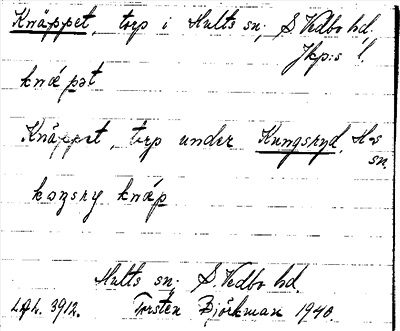 Knäppet, torp i Hults sn, S. Vedbo hd,
Jkp:s l.
knæpət
Knäppet, torp under Kungsryd, H-s
sn.
koŋsry knæp
Hults sn, S. Vedbo hd.
LAL. 3912. Torsten Björkman 1940.